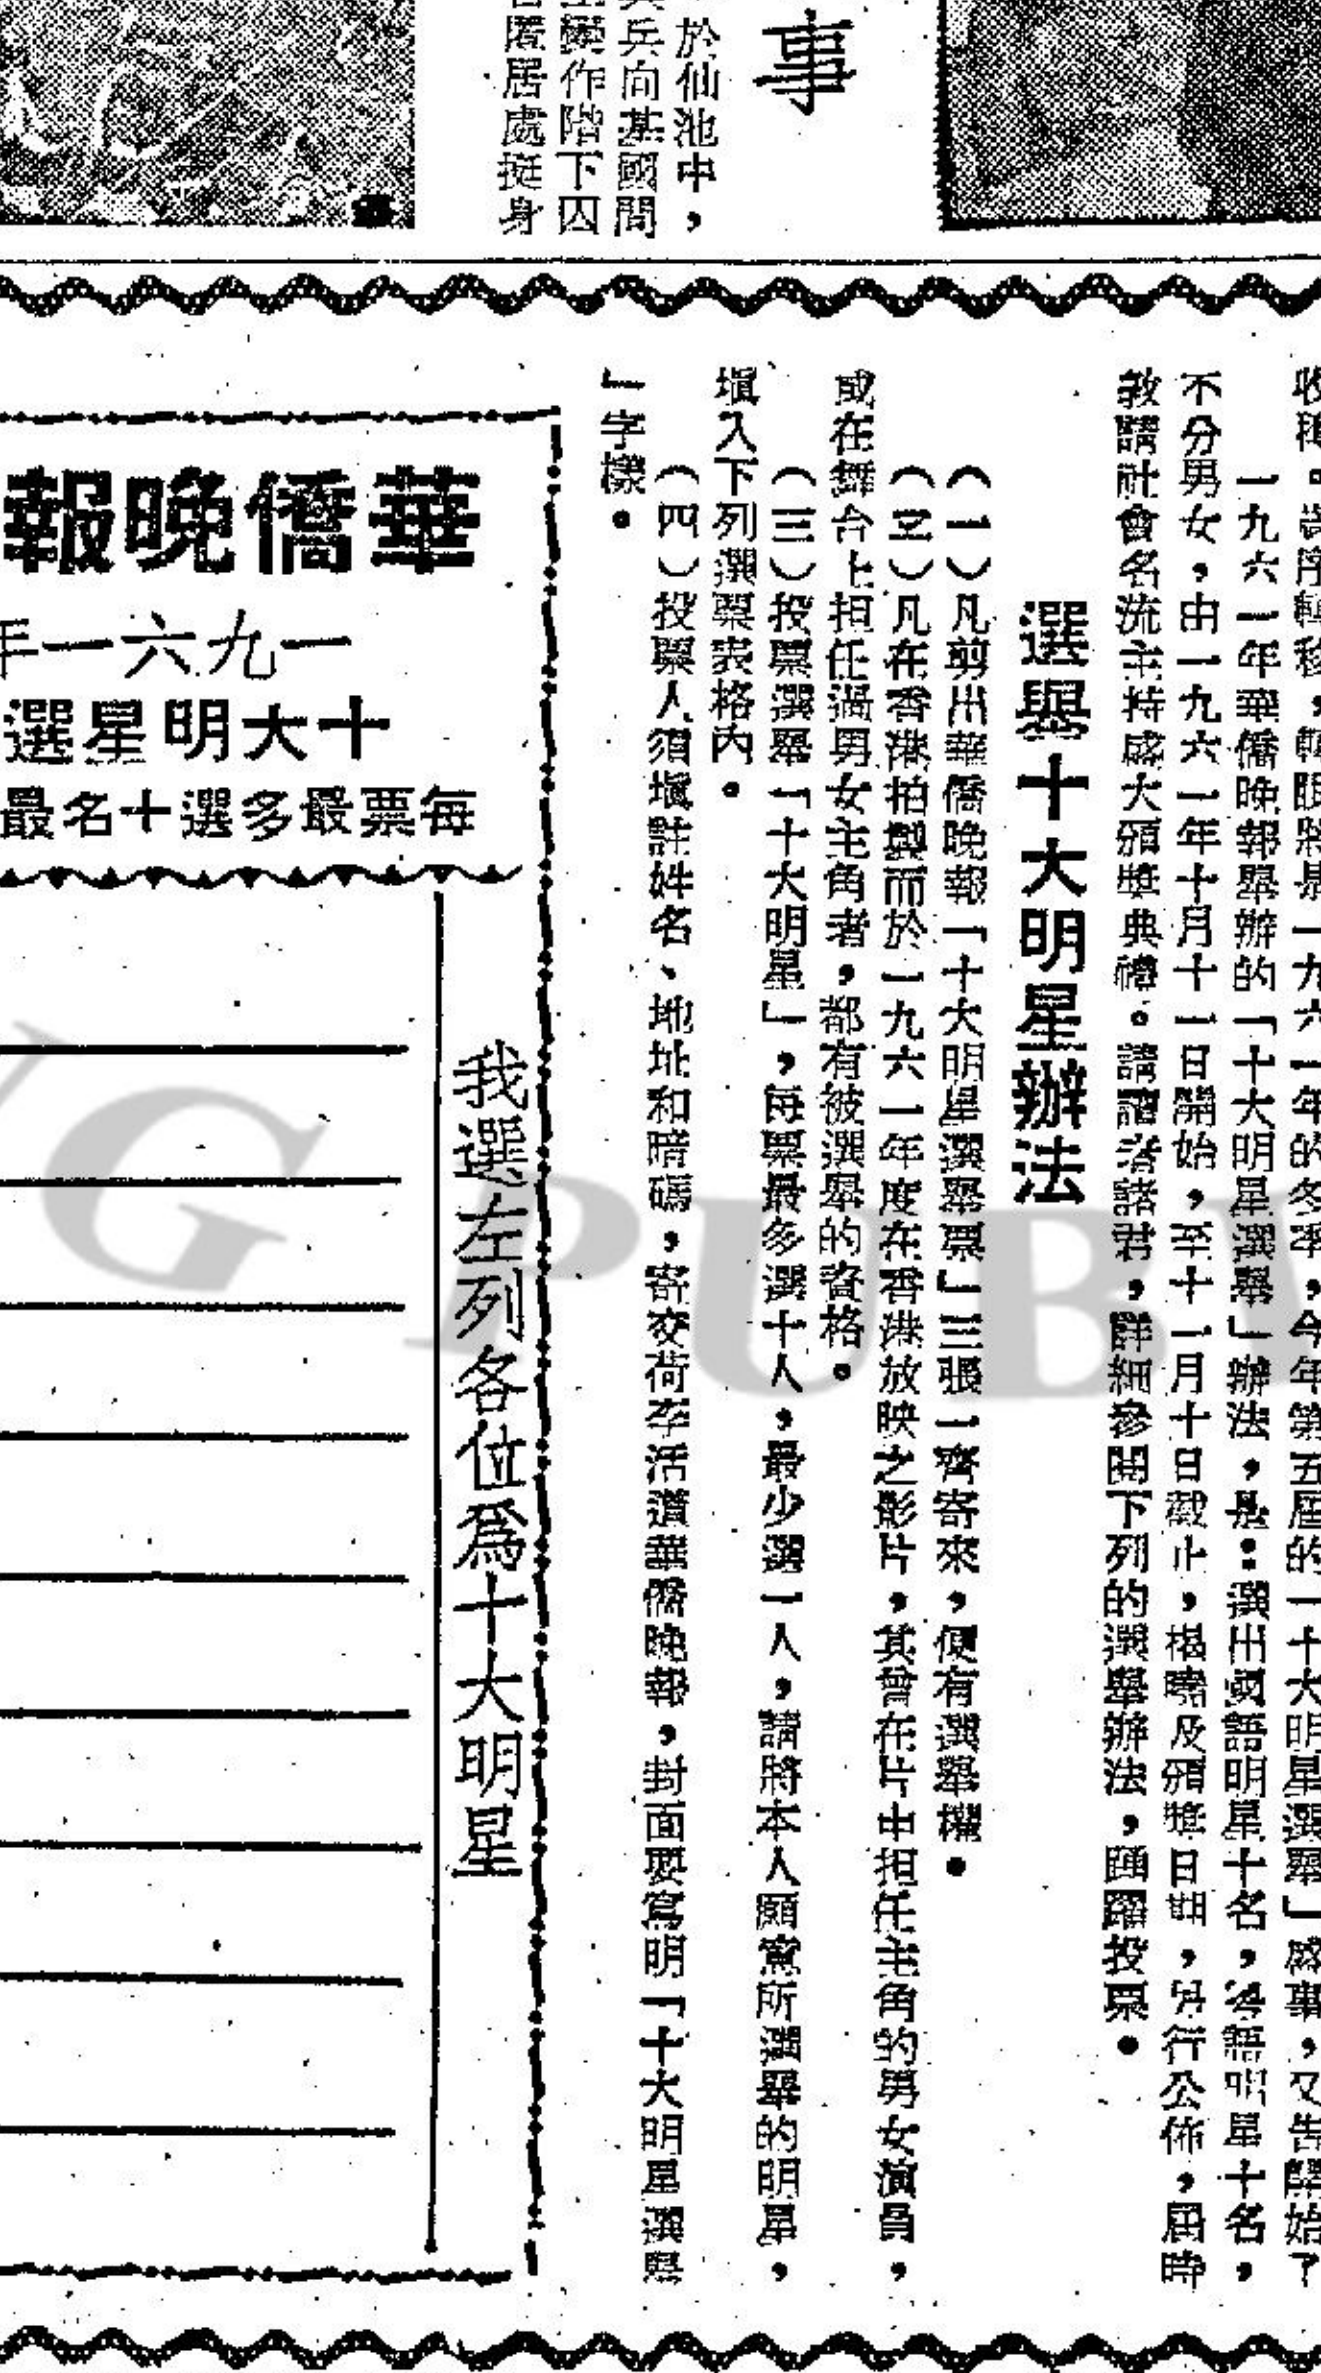 事
於仙池中，
兵向某國間
變作階下囚
匿居處挺身
歲序轉移，轉眼將是一九六一年的冬季，今年第五屆的「十大明星選舉」盛事，又告開始了
一九六一年華僑晚報舉辦的「十大明星選舉」辦法，是：選出國語明星十名，粵語明星十名，
不分男女，由一九六一年十月十一日開始，至十一月十日截止，揭曉及頒獎日期，另行公佈，屆時
敦請社會名流主持盛大頒獎典禮。請讀者諸君，詳細參閱下列的選舉辦法，踴躍投票。
選舉十大明星辦法
（一）凡剪出華僑晚報「十大明星選舉票」三張一齊寄來，便有選舉權。
（二）凡在香港拍製而於一九六一年度在香港放映之影片，其曾在片中担任主角的男女演員，
或在舞台上担任過男女主角者，都有被選舉的資格。
（三）投票選舉「十大明星」，每票最多選十人，最少選一人，請將本人願意所選舉的明星，
塡入下列選票表格內。
（四）投票人須塡註姓名、地址和暗碼，寄交荷李活道華僑晚報，封面要寫明「十大明星選舉
」字樣。
華僑晚報
一九六一年
十大明星選
每票最多選十名最
我選左列各位爲十大明星
PUB